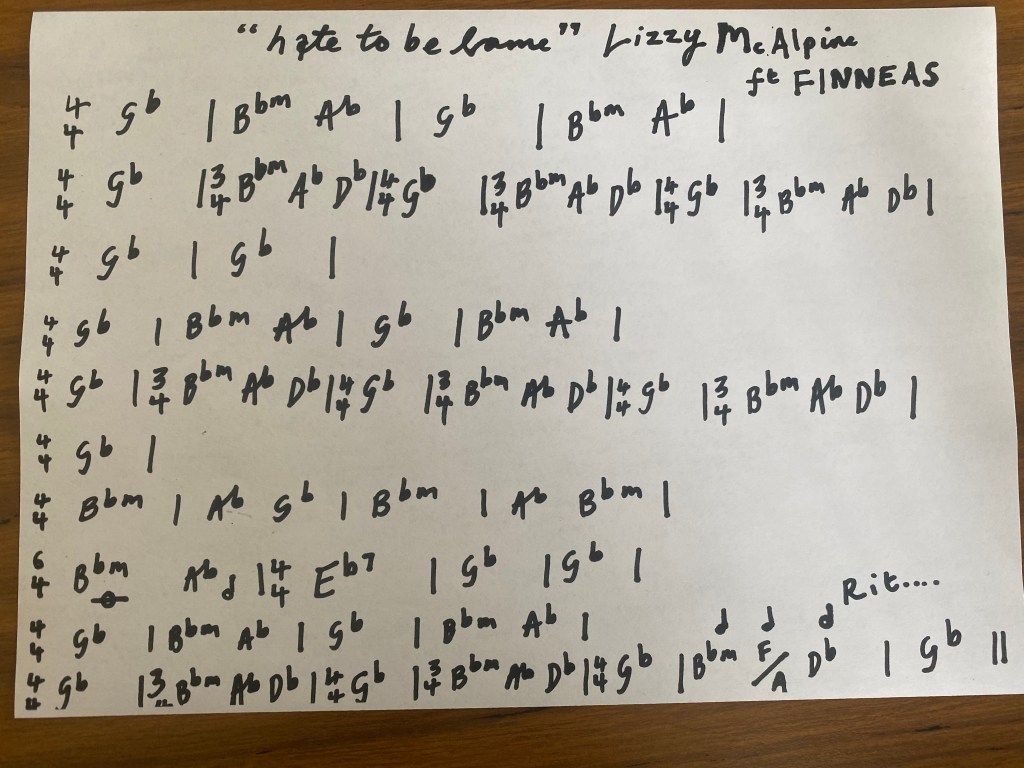 "hate to be lame" Lizzy McAlpine
ft FINNEAS
4/4 Gb | Bbm Ab | Gb | Bbm Ab |
4/4 Gb | 3/4 Bbm Ab Db | 4/4 Gb | 3/4 Bbm Ab Db | 4/4 Gb | 3/4 Bbm Ab Db |
4/4 Gb | Gb |
4/4 Gb | Bbm Ab | Gb | Bbm Ab |
4/4 Gb | 3/4 Bbm Ab Db | 4/4 Gb | 3/4 Bbm Ab Db | 4/4 Gb | 3/4 Bbm Ab Db |
4/4 Gb |
4/4 Bbm | Ab Gb | Bbm | Ab Bbm |
6/4 Bbm Ab | 4/4 Eb7 | Gb | Gb |
Rit....
4/4 Gb | Bbm Ab | Gb | Bbm Ab |
4/4 Gb | 3/4 Bbm Ab Db | 4/4 Gb | 3/4 Bbm Ab Db | 4/4 Gb | Bbm F/A Db | Gb ||